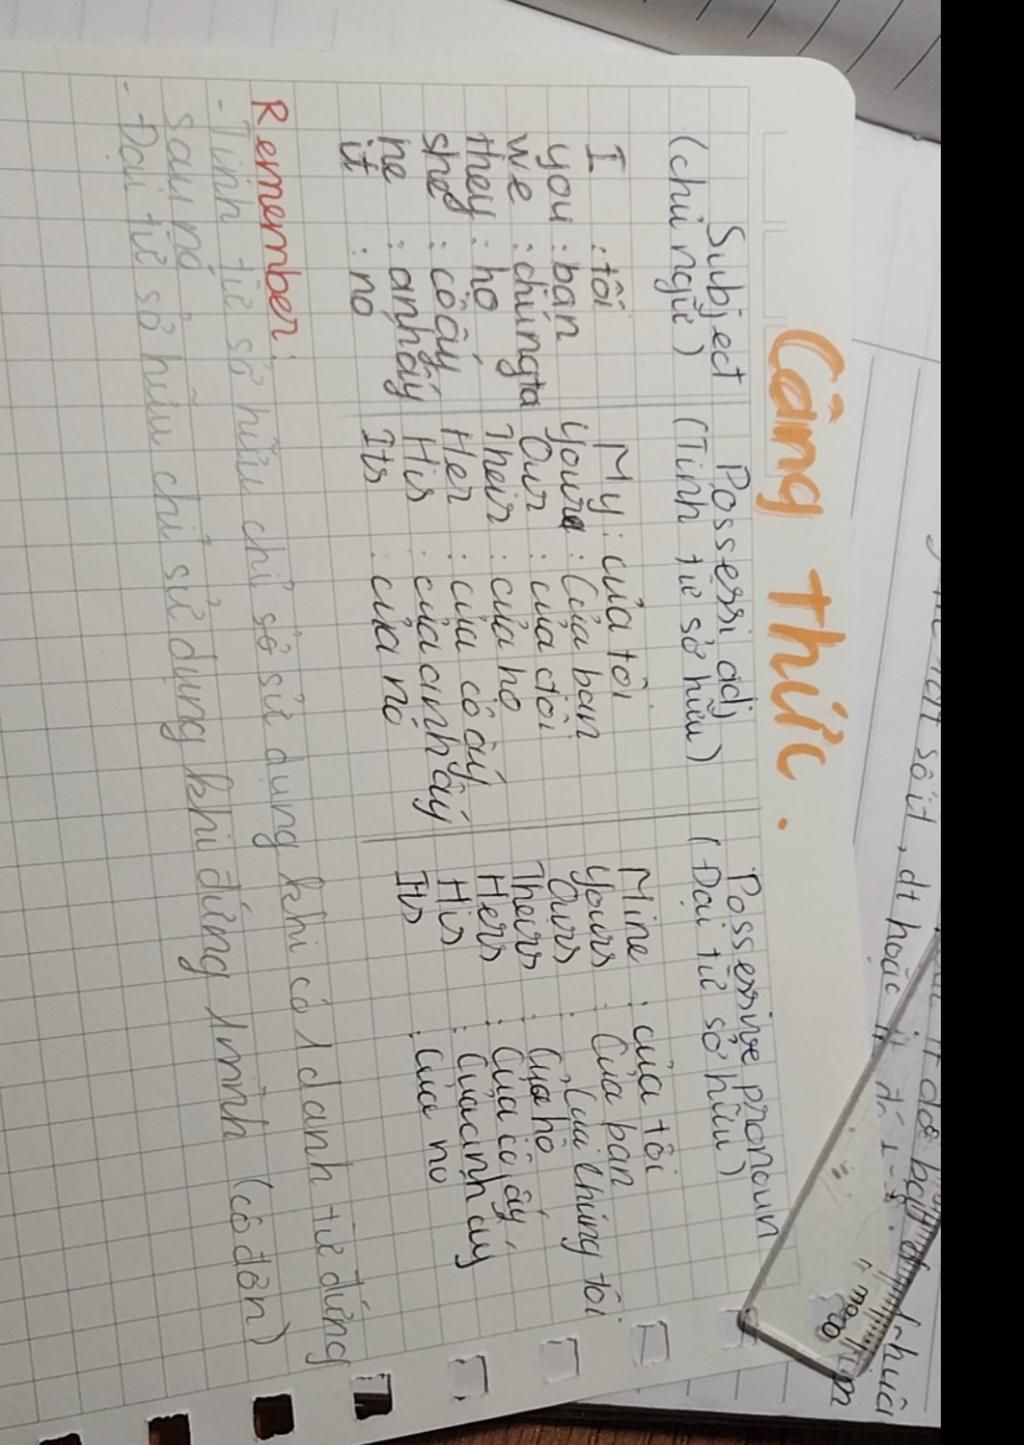 Công thức.
Subject Possessi adj Possessive pronoun
(chủ ngữ) (Tính từ sở hữu) (Đại từ sở hữu)
I : tôi My : của tôi Mine : của tôi
you : bạn your : của bạn yours : của bạn
we : chúng ta Our : của ctôi Ours : của chúng tôi
they : họ Their : của họ Theirs : của họ
she : cô ấy Her : của cô ấy Hers : của cô ấy
he : anh ấy His : của anh ấy His : của anh ấy
it : nó Its : của nó Its : của nó
Remember:
- Tính từ sở hữu chỉ sở sử dụng khi có 1 danh từ đứng
sau nó
- Đại từ sở hữu chỉ sử dụng khi đứng 1 mình (cô đơn)
số ít, dt hoặc